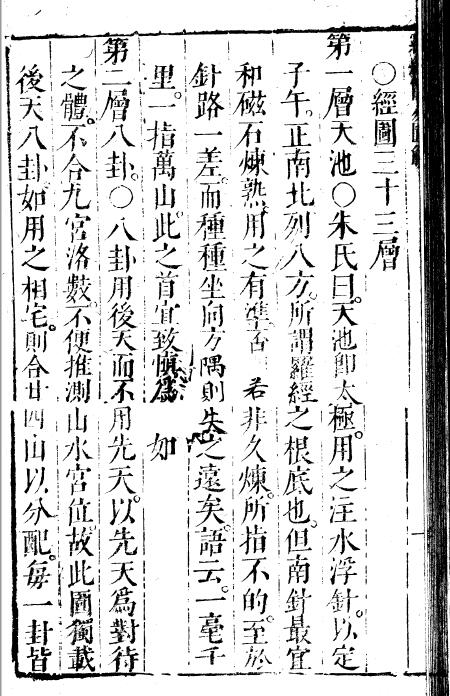 ○經圖三十三層
第一層天池○朱氏曰。天池卽太極。用之注水浮針。以定
子午。正南北列八方。所謂羅經之根底也。但南針最宜
和磁石煉熟。用之有準否 若非久煉。所指不的。至於
針路一差。而種種坐向方隅則失之遠矣。語云。一毫千
里。一指萬山。此之首宜致慎爲 如
第二層八卦。○八卦用後天而不用先天。以先天爲對待
之體。不合九宮洛數不便推測山水宮位故此圖獨載
後天八卦。如用之相宅。則合廿四山以分配。每一卦皆